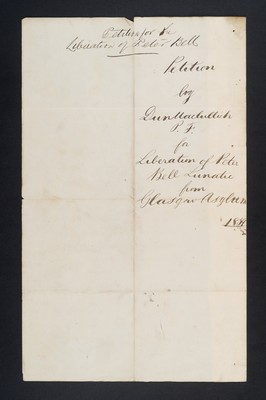 Petition for the
Liberation of Peter Bell
Petition
by
Dun MacCulloch
P. F.
for
Liberation of Peter
Bell Lunatic
from
Glasgow Asylum